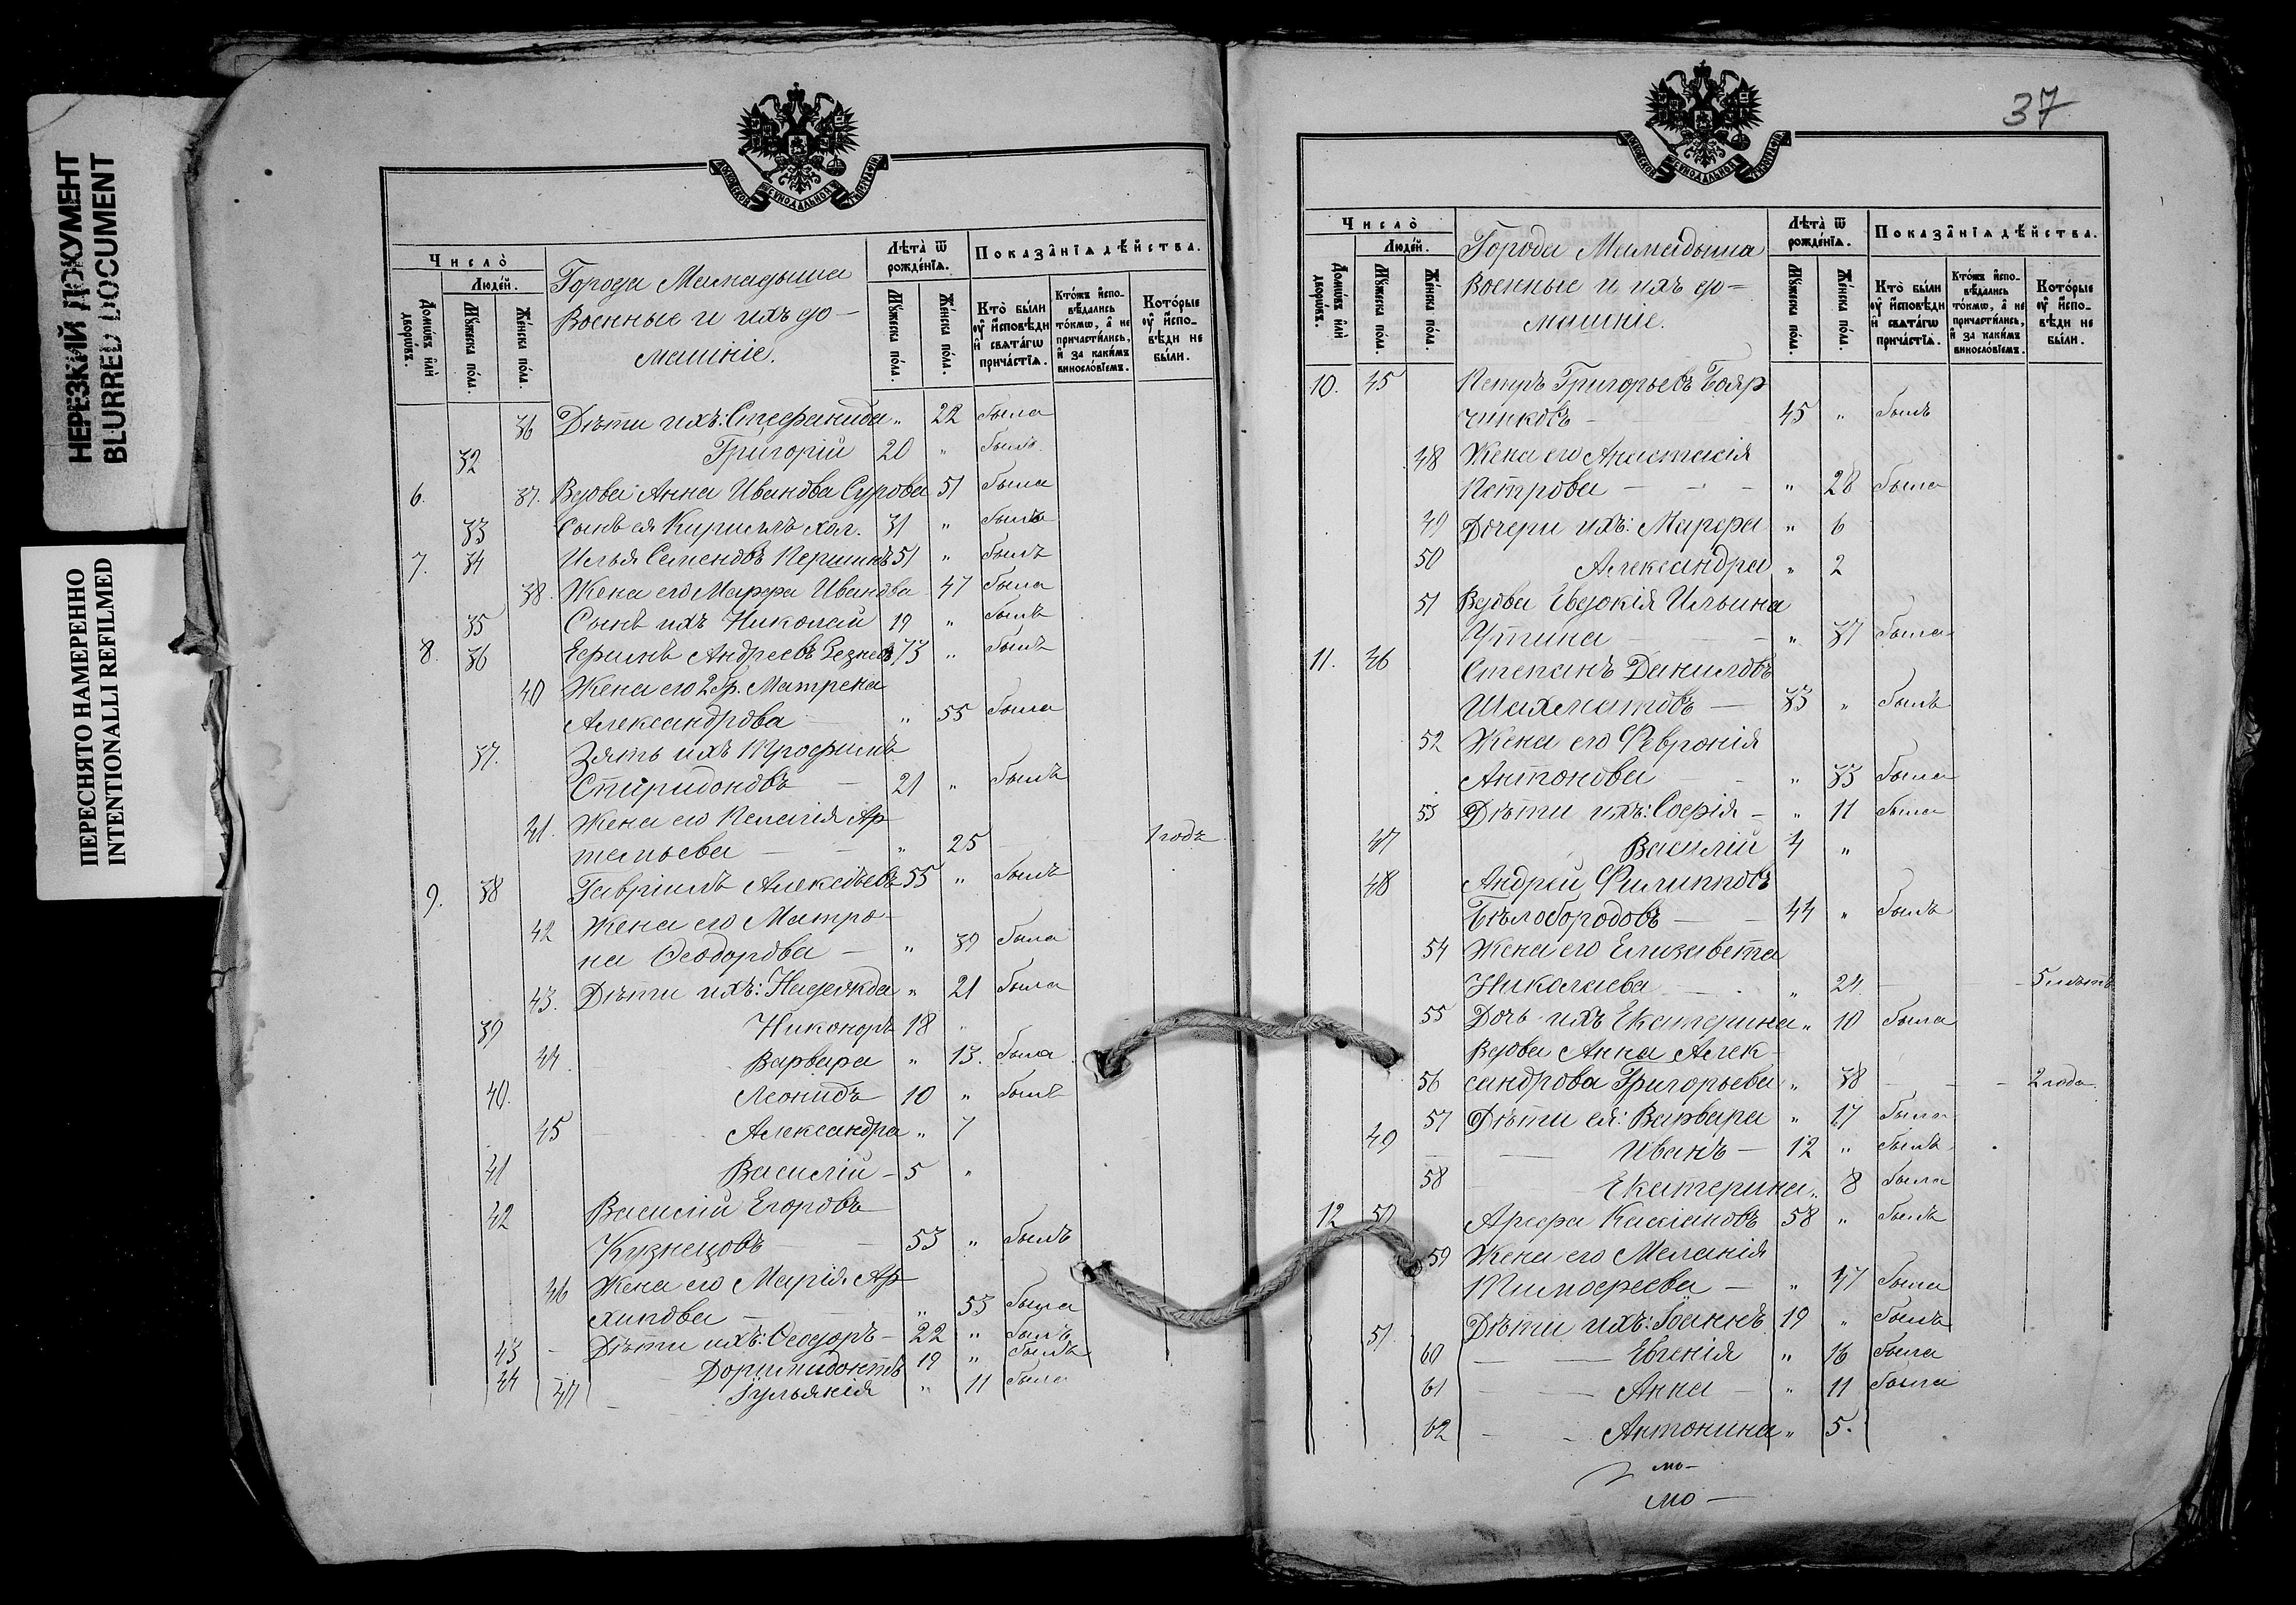 НЕРЕЗКИЙ ДОКУМЕНТ
BLURRED DOCUMENT
ПЕРЕСНЯТО НАМЕРЕННО
INTENTIONALLI REFILMED
МОСКОВСКОЙ СѴНОДАЛЬНОЙ ТИПОГРАФІИ
Число̀
Люде́й.
Домѡ́въ и҆лѝ дворѡ́въ.
Мꙋ́жеска по́ла.
Же́нска по́ла.
Города Мамадыша
Военные и ихъ до-
машніе.
Лѣ́та ѿ рожде́нїѧ.
Мꙋ́жеска по́ла.
Же́нска по́ла.
Показа̑нїѧ дѣ́йства.
Кто̀ бы́ли ᲂу҆ и҆сповѣ́ди и҆ свѧта́гѡ прича́стїѧ.
Кто́жъ и҆сповѣ́дались то́кмѡ, а҆ не причасти́лись, и҆ за каки́мъ винослові́емъ.
Кото́рые ᲂу҆ и҆сповѣ́ди не бы́ли.
36 Дѣти ихъ: Стефанида „ 22 была
32 Григорій 20 „ былъ
6. 37. Вдова Анна Иванова Сурова 51 была
33 Сынъ ея Кириллъ хол. 31 „ былъ
7. 34 Илья Семеновъ Першинъ 51 „ былъ
38. Жена его Марфа Иванова 47 была
35 Сынъ ихъ Николай 19 „ былъ
8. 36 Ефимъ Андреевъ 73 „ былъ
40 Жена его 2 бр. Матрена
Александрова „ 55 была
37. Зять ихъ Трофимъ
Спиридоновъ — 21 „ былъ
41. Жена его Пелагія Ар-
темьева — „ 25 1 годъ
9. 38 Гавріилъ Алексѣевъ 55 „ былъ
42 Жена его Матро-
на Ѳеодорова — „ 39 была
43. Дѣти ихъ: Надежда „ 21 была
39 Никоноръ 18 „
44 Варвара „ 13. была
40. Леонидъ 10 „ былъ
45 Александра „ 7
41 Василій — 5 „
42 Василій Егоровъ
Кузнецовъ 53 „ былъ
46 Жена его Марія Ар-
хипова — „ 53 была
43 — Дѣти ихъ: Ѳеодоръ — 22 „ былъ
44 Доримидонтъ 19 „ былъ
47 — Іульянія „ 11 была
37
МОСКОВСКОЙ СѴНОДАЛЬНОЙ ТИПОГРАФІИ
Число̀
Люде́й.
Домѡ́въ и҆лѝ дворѡ́въ.
Мꙋ́жеска по́ла.
Же́нска по́ла.
Города Мамадыша
Военные и ихъ до-
машніе.
Лѣ́та ѿ рожде́нїѧ.
Мꙋ́жеска по́ла.
Же́нска по́ла.
Показа̑нїѧ дѣ́йства.
Кто̀ бы́ли ᲂу҆ и҆сповѣ́ди и҆ свѧта́гѡ прича́стїѧ.
Кто́жъ и҆сповѣ́дались то́кмѡ, а҆ не причасти́лись, и҆ за каки́мъ винослові́емъ.
Кото́рые ᲂу҆ и҆сповѣ́ди не бы́ли.
10. 45 Петръ Григорьевъ Бояр
чинковъ — 45 „ былъ
48 Жена его Анастасія
Петрова — — — „ 28 была
49 Дочери ихъ: Марфа „ 6
50 Александра „ 2
51 Вдова Евдокія Ильина
Утина — „ 37 была
11. 46 Степанъ Даниловъ
Шахматовъ — 33 „ былъ
52 Жена его Февронія
Антонова — „ 33 была
53 Дѣти ихъ: Софія — „ 11 была
47 Василій 4 „
48 Андрей Филипповъ
Бѣлобородовъ — 44 „ былъ
54 Жена его Елизавета
Николаева „ 24 — — 5 лѣтъ
55 Дочь ихъ Екатерина „ 10 была
Вдова Анна Алек-
56 сандрова Григорьева „ 38 — — 2 года.
57 Дѣти ея: Варвара „ 17 была
49 — Иванъ — 12 „ былъ
58 Екатерина „ 8 была
12 50 Арефа Кассіановъ 58 „ былъ
59 Жена его Меланія
Тимофеева — „ 47 была
51 Дѣти ихъ: Іоаннъ 19 „ былъ
60 — Евгенія „ 16 была
61 — Анна — „ 11 была
62 — Антонина „ 5.
мо—
мо—